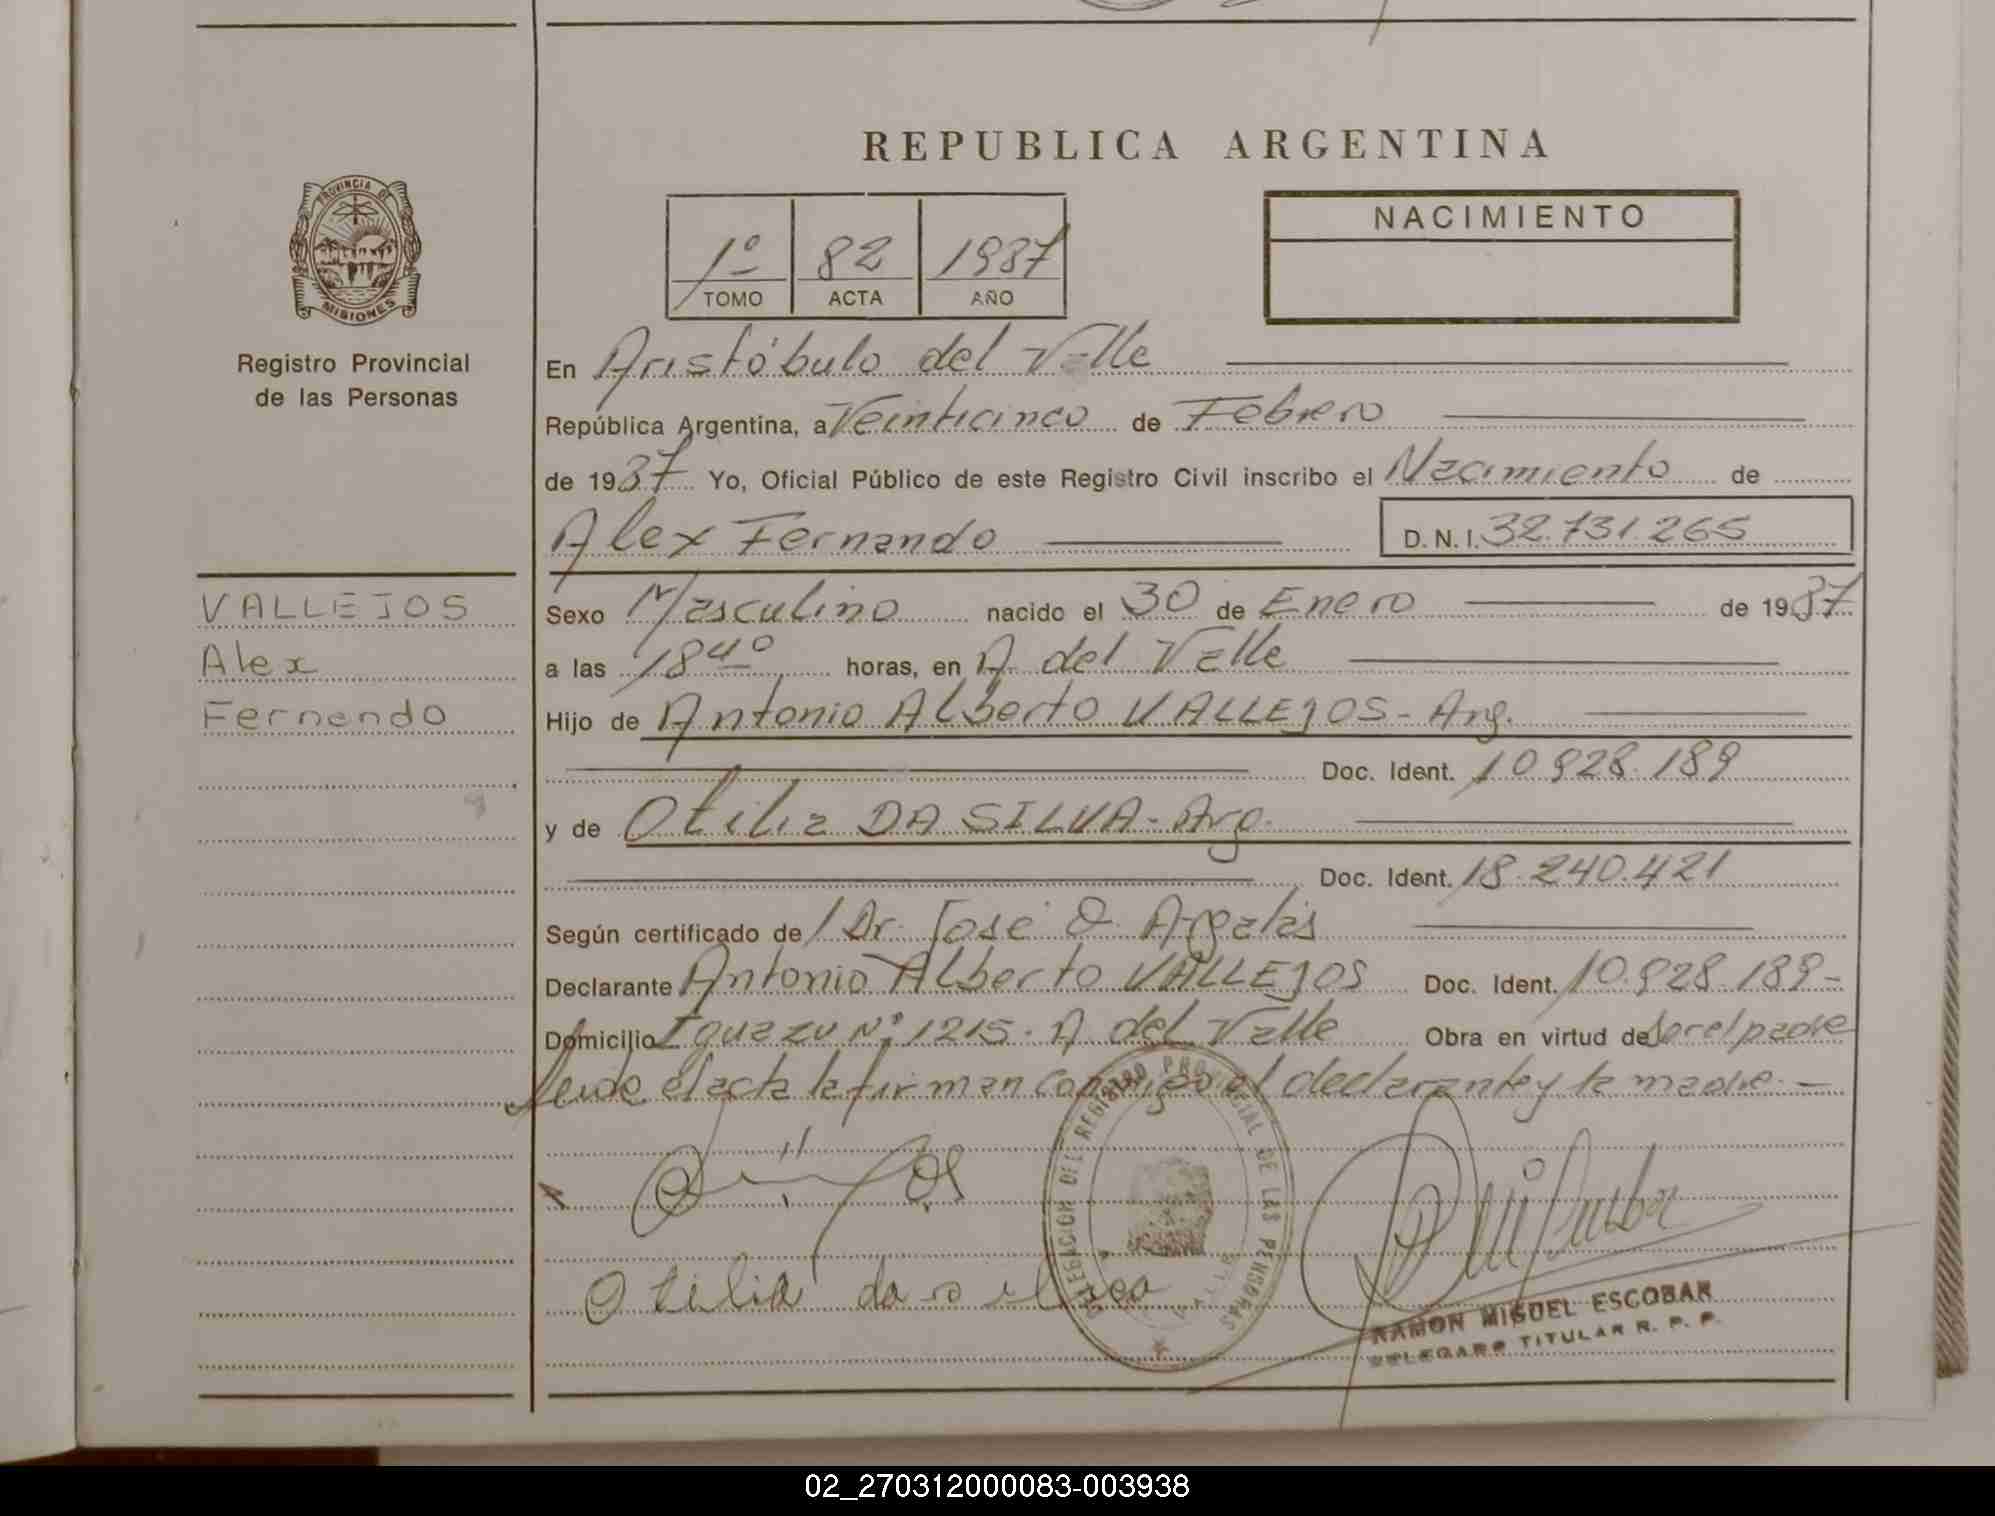 REPUBLICA ARGENTINA
PROVINCIA DE
MISIONES
Registro Provincial
de las Personas
1º 82 1987
TOMO ACTA AÑO
NACIMIENTO
En Aristóbulo del Valle
República Argentina, a Veinticinco de Febrero
de 1987 Yo, Oficial Público de este Registro Civil inscribo el Nacimiento de
Alex Fernando D.N.I. 32.731.265
VALLEJOS
Alex
Fernando
Sexo Masculino nacido el 30 de Enero de 1987
a las 18 40 horas, en A. del Valle
Hijo de Antonio Alberto VALLEJOS - Arg.
Doc. Ident. 10.928.189
y de Otilia DA SILVA - Arg.
Doc. Ident. 18.240.421
Según certificado de Dr. José O. Argalas
Declarante Antonio Alberto VALLEJOS Doc. Ident. 10.928.189-
Domicilio Iguazu Nº 1215 - A. del Valle Obra en virtud de Ser el padre
leida el acta la firman conmigo el declarante y la madre.-
DELEGACION DEL REGISTRO PROVINCIAL DE LAS PERSONAS
VALLE
Otilia da silva
RAMON MIGUEL ESCOBAR
DELEGADO TITULAR R. P. P.
02_270312000083-003938